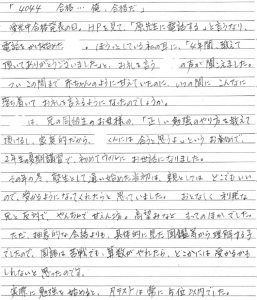 「4044 合格… 俺、合格だ」
栄光中合格発表の日。HPを見て、「原先生に電話する」と言うなり、
電話をかけ始めた　。ほうっとしている私の耳に、「4年間、教えて
頂いてありがとうございました」と、お礼を言う　の声が聞こえます。
ついこの間まで赤ちゃんのように甘えていたのに、いつの間に こんなに
落ち着いて お礼を言えるようになったのでしょうか。
は、兄の同級生のお母様の、「正しい勉強のやり方を教えて
頂けるし、家庭的だから、　くんには合うと思うよ」というお勧めで、
2年生の夏期講習で、初めて お世話になりました。
その年の冬、塾生として通い始めた当初は、親としては どこでもいい
ので、受かるようになってくれたらと思っていました。おとなしく利発な
兄と反対で、やんちゃで甘えん坊。高望みなど もってのほかでした。
ただ、抽象的な会話よりも、具体的に見た図鑑等から理解する子
でしたので、国語は苦戦でも、算数がやれたら、どこかには 受かるかも
しれないと思ったのです。
実際に勉強を始めると、月テストは常に 位以内でした。